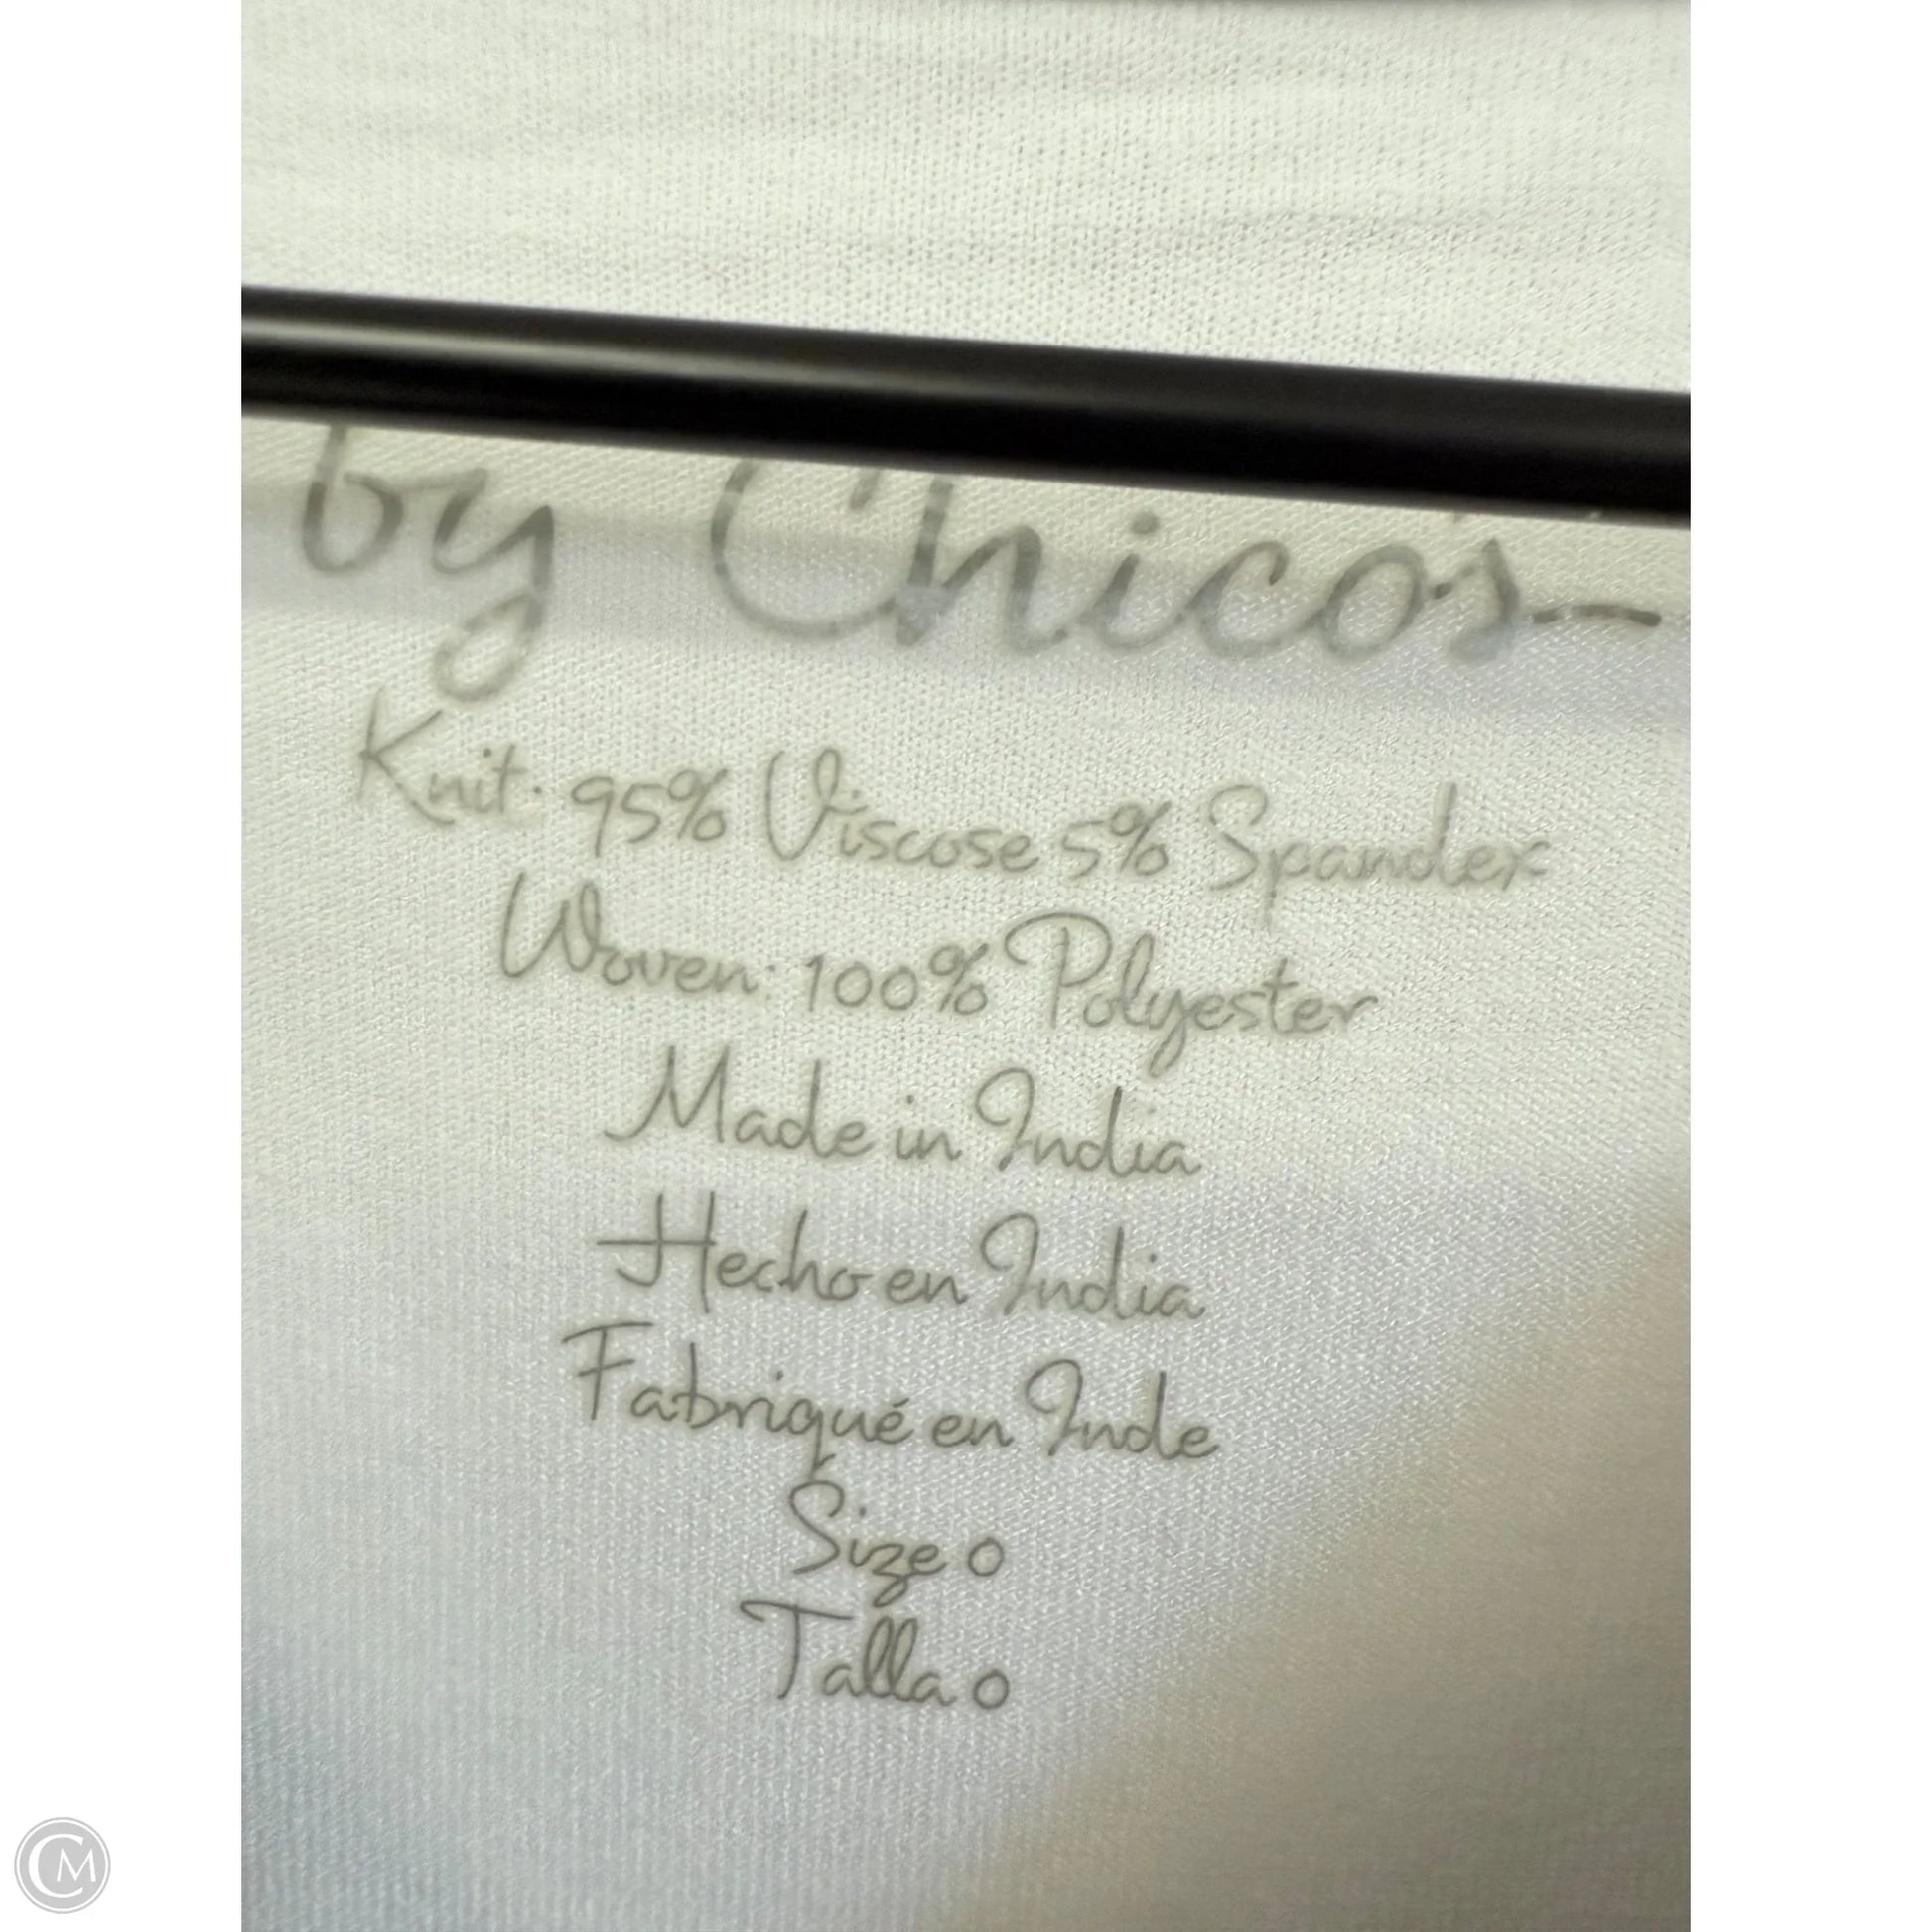 by Chico's
Knit: 95% Viscose 5% Spandex
Woven: 100% Polyester
Made in India
Hecho en India
Fabriqué en Inde
Size 0
Talla 0
CM